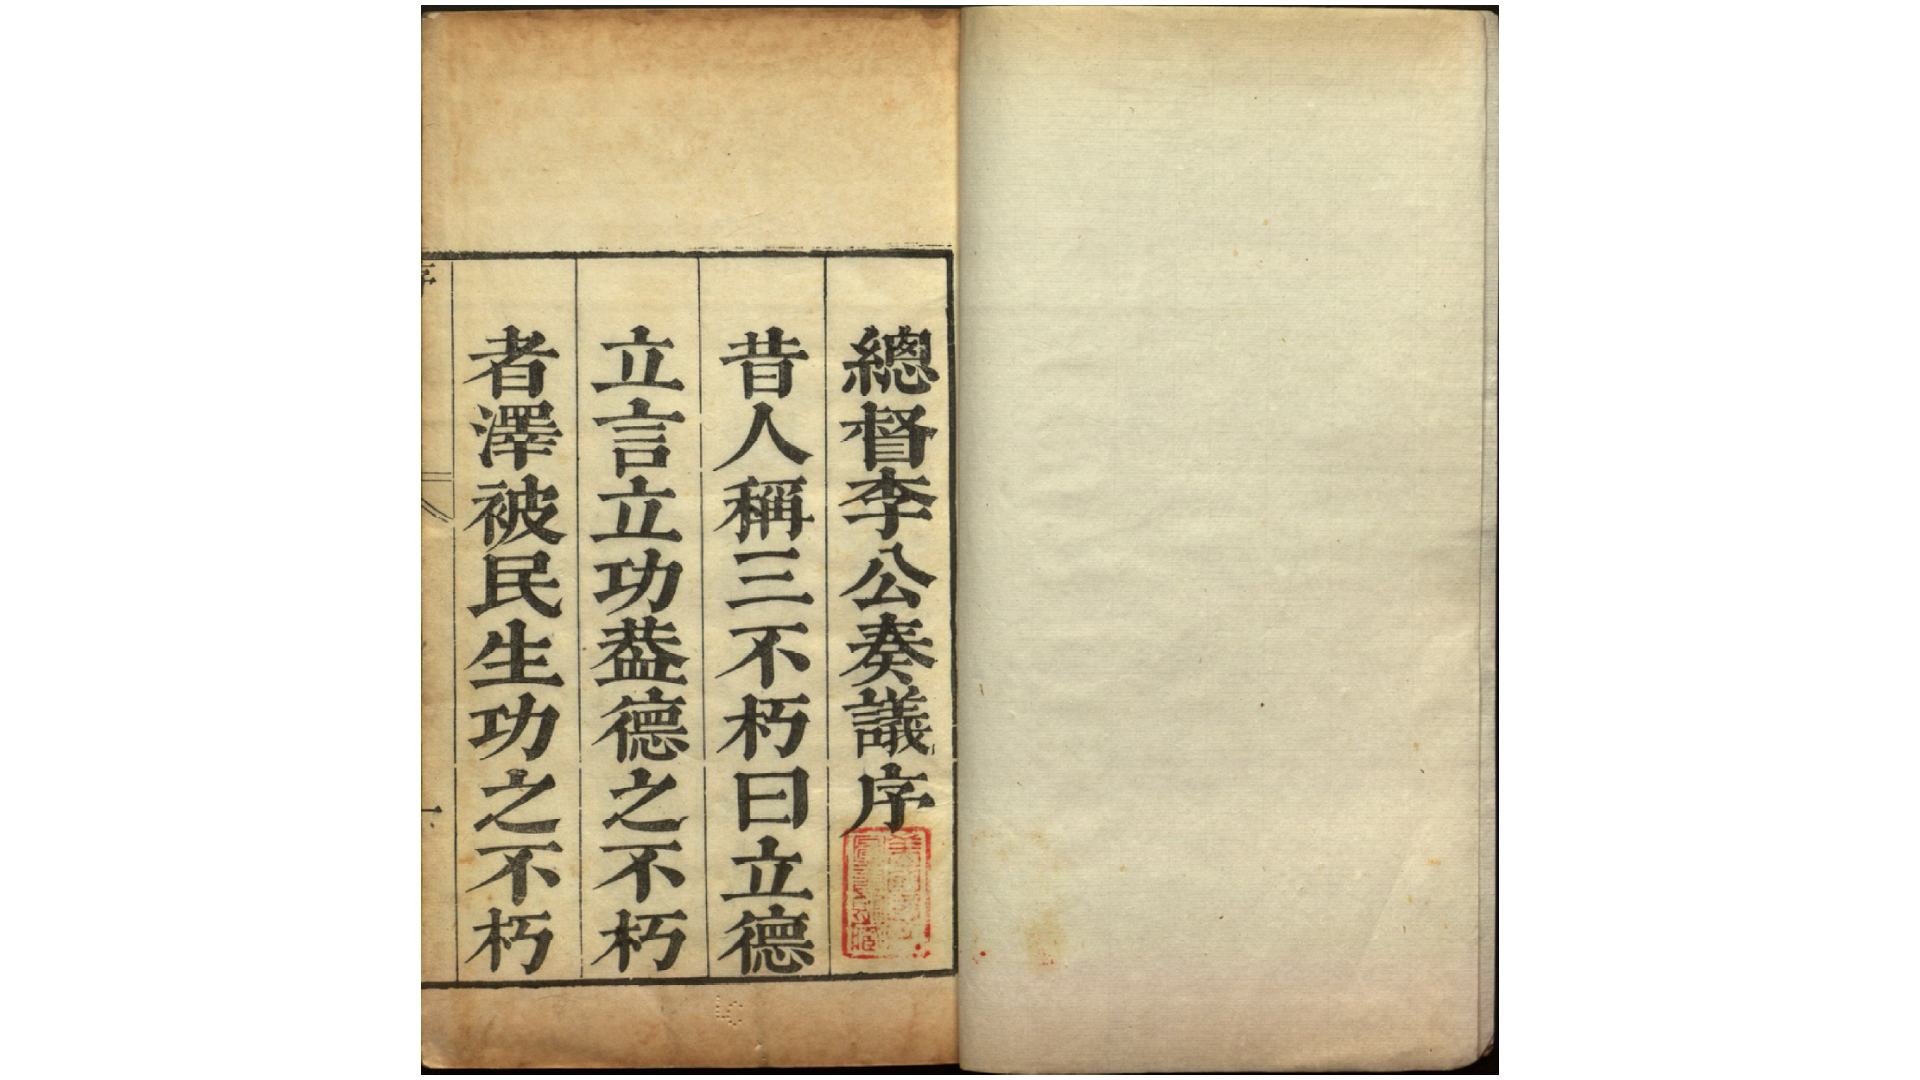 總督李公奏議序
昔人稱三不朽曰立德
立言立功葢德之不朽
者澤被民生功之不朽
序
一